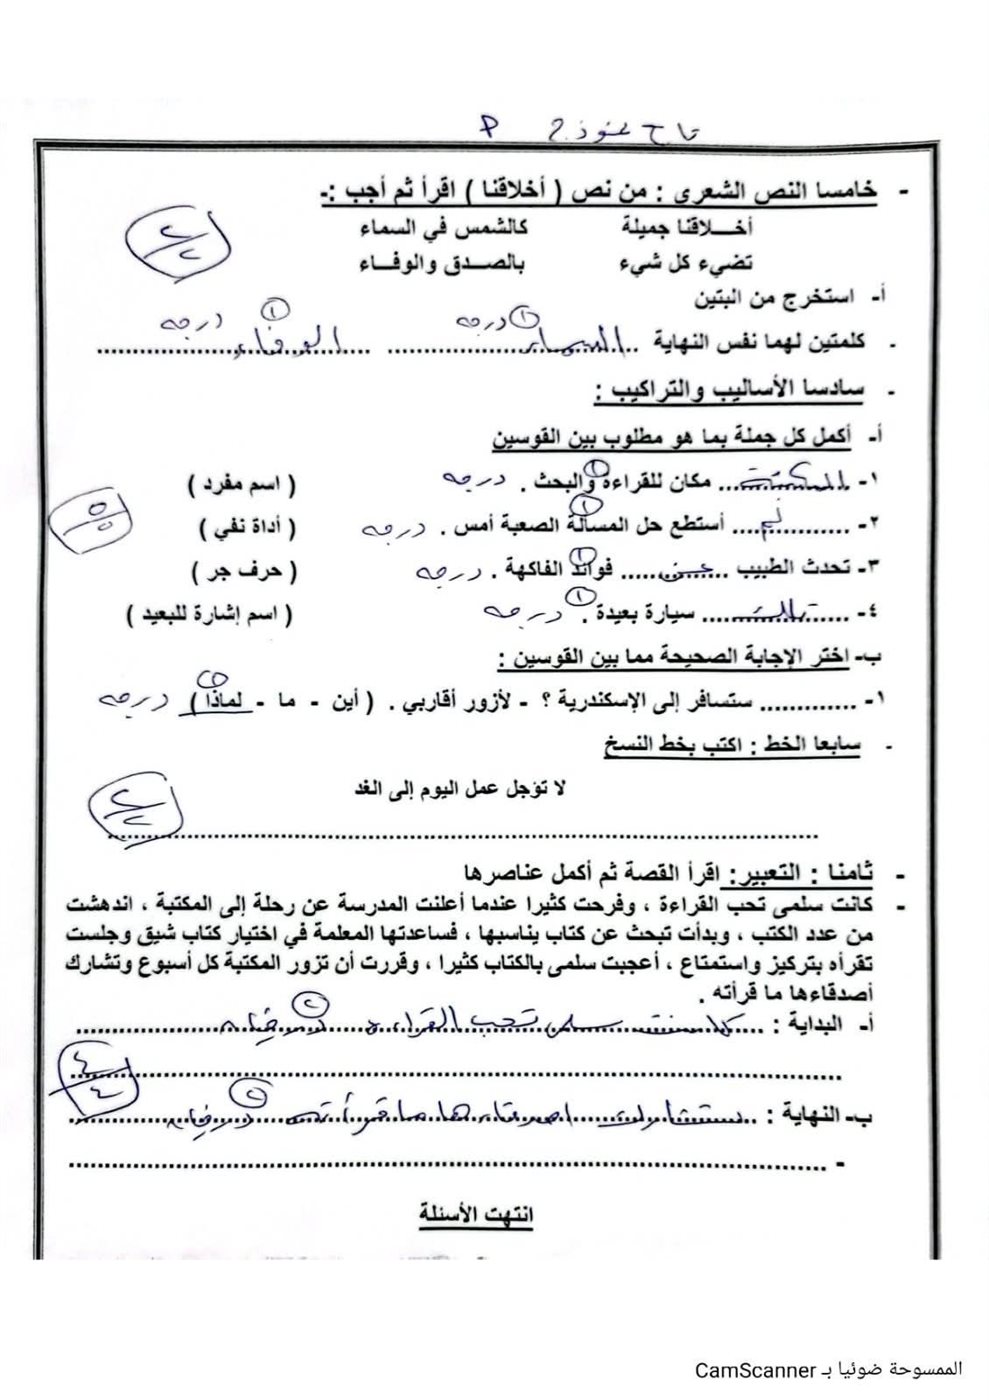 تابع نموذج P
- خامسا النص الشعرى : من نص ( أخلاقنا ) اقرأ ثم أجب :-
أخـــلاقنا جميلة كالشمس في السماء
تضيء كل شيء بالصــدق والوفــاء
٢/٢
أ- استخرج من البتين
- كلمتين لهما نفس النهاية السماء ١ درجه الوفاء ١ درجه
- سادسا الأساليب والتراكيب :
أ- أكمل كل جملة بما هو مطلوب بين القوسين
١- المكتبة مكان للقراءة والبحث . ١ درجه ( اسم مفرد )
٢- لم أستطع حل المسألة الصعبة أمس . ١ درجه ( أداة نفي )
٥/٥
٣- تحدث الطبيب عن فوائد الفاكهة . ١ درجه ( حرف جر )
٤- تلك سيارة بعيدة . ١ درجه ( اسم إشارة للبعيد )
ب- اختر الإجابة الصحيحة مما بين القوسين :
١- ............. ستسافر إلى الإسكندرية ؟ - لأزور أقاربي . ( أين - ما - لماذا ) ١ درجه
- سابعا الخط : اكتب بخط النسخ
لا تؤجل عمل اليوم إلى الغد
٢/٢
- ثامنا : التعبير: اقرأ القصة ثم أكمل عناصرها
- كانت سلمى تحب القراءة ، وفرحت كثيرا عندما أعلنت المدرسة عن رحلة إلى المكتبة ، اندهشت
من عدد الكتب ، وبدأت تبحث عن كتاب يناسبها ، فساعدتها المعلمة في اختيار كتاب شيق وجلست
تقرأه بتركيز واستمتاع ، أعجبت سلمى بالكتاب كثيرا ، وقررت أن تزور المكتبة كل أسبوع وتشارك
أصدقاءها ما قرأته .
أ- البداية : كانت سلمى تحب القراءة ٢ درجتان
٤/٤
ب- النهاية : ستشارك اصدقاءها ما قرأته ٢ درجتان
انتهت الأسئلة
الممسوحة ضوئيا بـ CamScanner